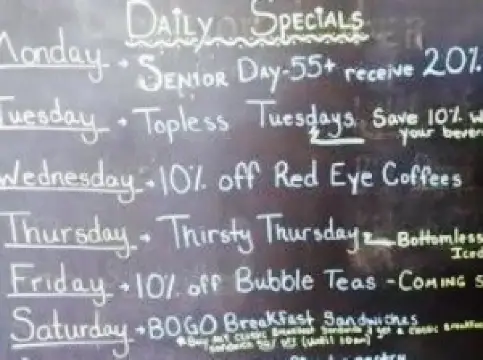 DAILY SPECIALS
Monday → SENIOR DAY-55+ receive 20%
Tuesday → Topless Tuesdays Save 10% w
your bever
Wednesday → 10% off Red Eye Coffees
Thursday → Thirsty Thursday Bottomless
Iced
Friday → 10% off Bubble Teas - COMING S
Saturday → BOGO Breakfast Sandwiches